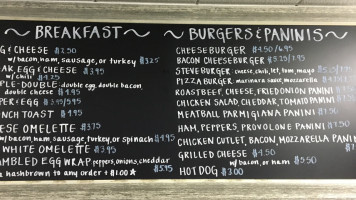 ~ BREAKFAST ~
G & CHEESE $2.50
w/bacon, ham, sausage, or turkey $3.25
AK, EGG & CHEESE $3.95
w/chili $4.25
PLE-DOUBLE double egg, double bacon,
double cheese $4.95
PER & EGG $3.95/5.95
NCH TOAST $4.95
EESE OMELETTE $3.75
w/bacon, ham, sausage, turkey, or spinach $4.95
WHITE OMELETTE $3.95
MBLED EGG WRAP peppers, onions, cheddar $5.95
hashbrown to any order +$1.00
~ BURGERS & PANINIS ~
CHEESEBURGER $4.50/6.95
BACON CHEESEBURGER
STEVE BURGER cheese, chili, let, tom, mayo
PIZZA BURGER marinara sauce, mozzarella
ROASTBEEF, CHEESE, FRIED ONION PANINI
CHICKEN SALAD, CHEDDAR, TOMATO PANINI
MEATBALL PARMIGIANA PANINI
HAM, PEPPERS, PROVOLONE PANINI
CHICKEN CUTLET, BACON, MOZZARELLA PANINI
GRILLED CHEESE $4.50
w/bacon, or ham $5.50
HOT DOG $3.00